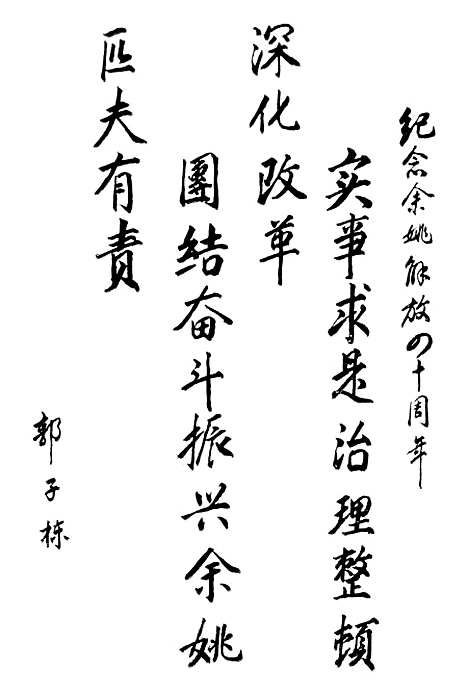 纪念余姚解放四十周年
实事求是治理整顿
深化改革
團结奋斗振兴余姚
匹夫有责
郭子栋